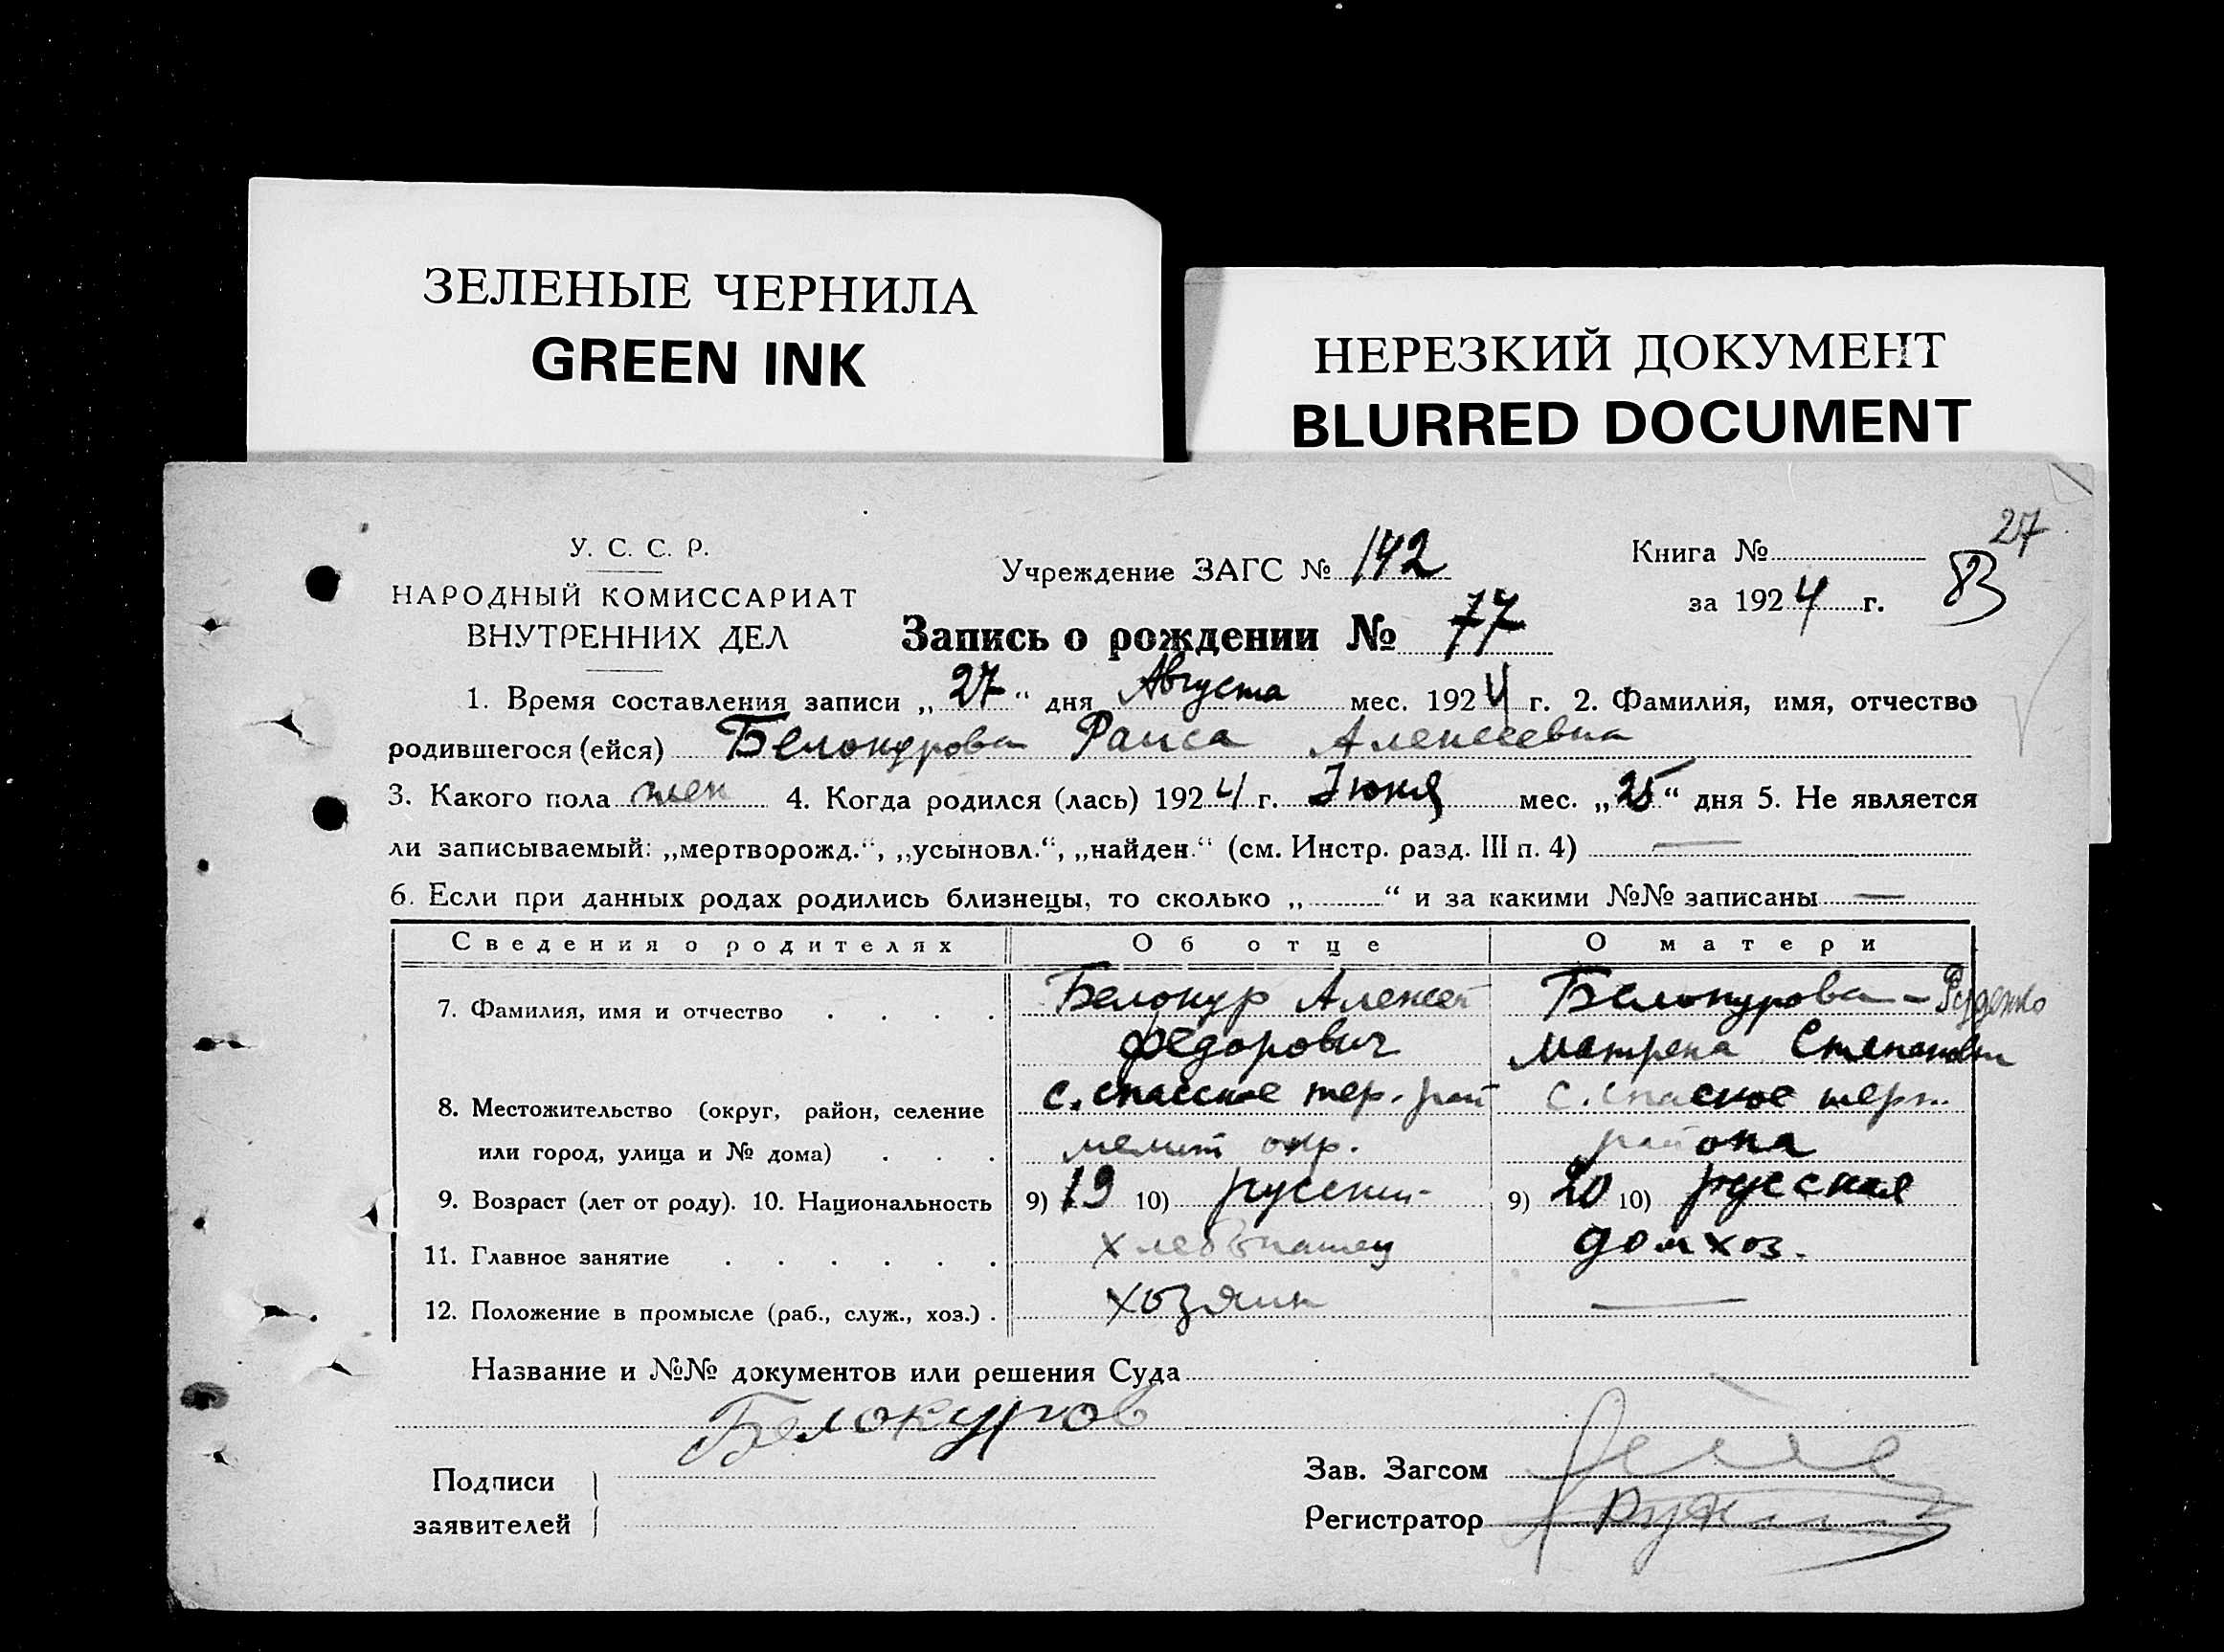 ЗЕЛЕНЫЕ ЧЕРНИЛА
GREEN INK
НЕРЕЗКИЙ ДОКУМЕНТ
BLURRED DOCUMENT
27
У. С. С. Р.
НАРОДНЫЙ КОМИССАРИАТ
ВНУТРЕННИХ ДЕЛ
Учреждение ЗАГС № 142
Книга №
за 1924 г.
83
Запись о рождении № 77
1. Время составления записи „27“ дня Августа мес. 1924 г. 2. Фамилия, имя, отчество
родившегося (ейся) Белокурова Раиса Алексеевна
3. Какого пола жен 4. Когда родился (лась) 1924 г. Июня мес. „25“ дня 5. Не является
ли записываемый: „мертворожд.“, „усыновл.“, „найден.“ (см. Инстр. разд. III п. 4) —
6. Если при данных родах родились близнецы, то сколько „ “ и за какими №№ записаны —
Сведения о родителях Об отце О матери
7. Фамилия, имя и отчество Белокур Алексей Белокурова - Руденко
Федорович Матрена Степановн
8. Местожительство (округ, район, селение с. спасское тер. рай с. спаское терп.
или город, улица и № дома) мелит окр. района
9. Возраст (лет от роду). 10. Национальность 9) 19 10) русский 9) 20 10) русская
11. Главное занятие хлебопашец домхоз.
12. Положение в промысле (раб., служ., хоз.) хозяин —
Название и №№ документов или решения Суда
Белокуров
Подписи
заявителей
Зав. Загсом
Регистратор